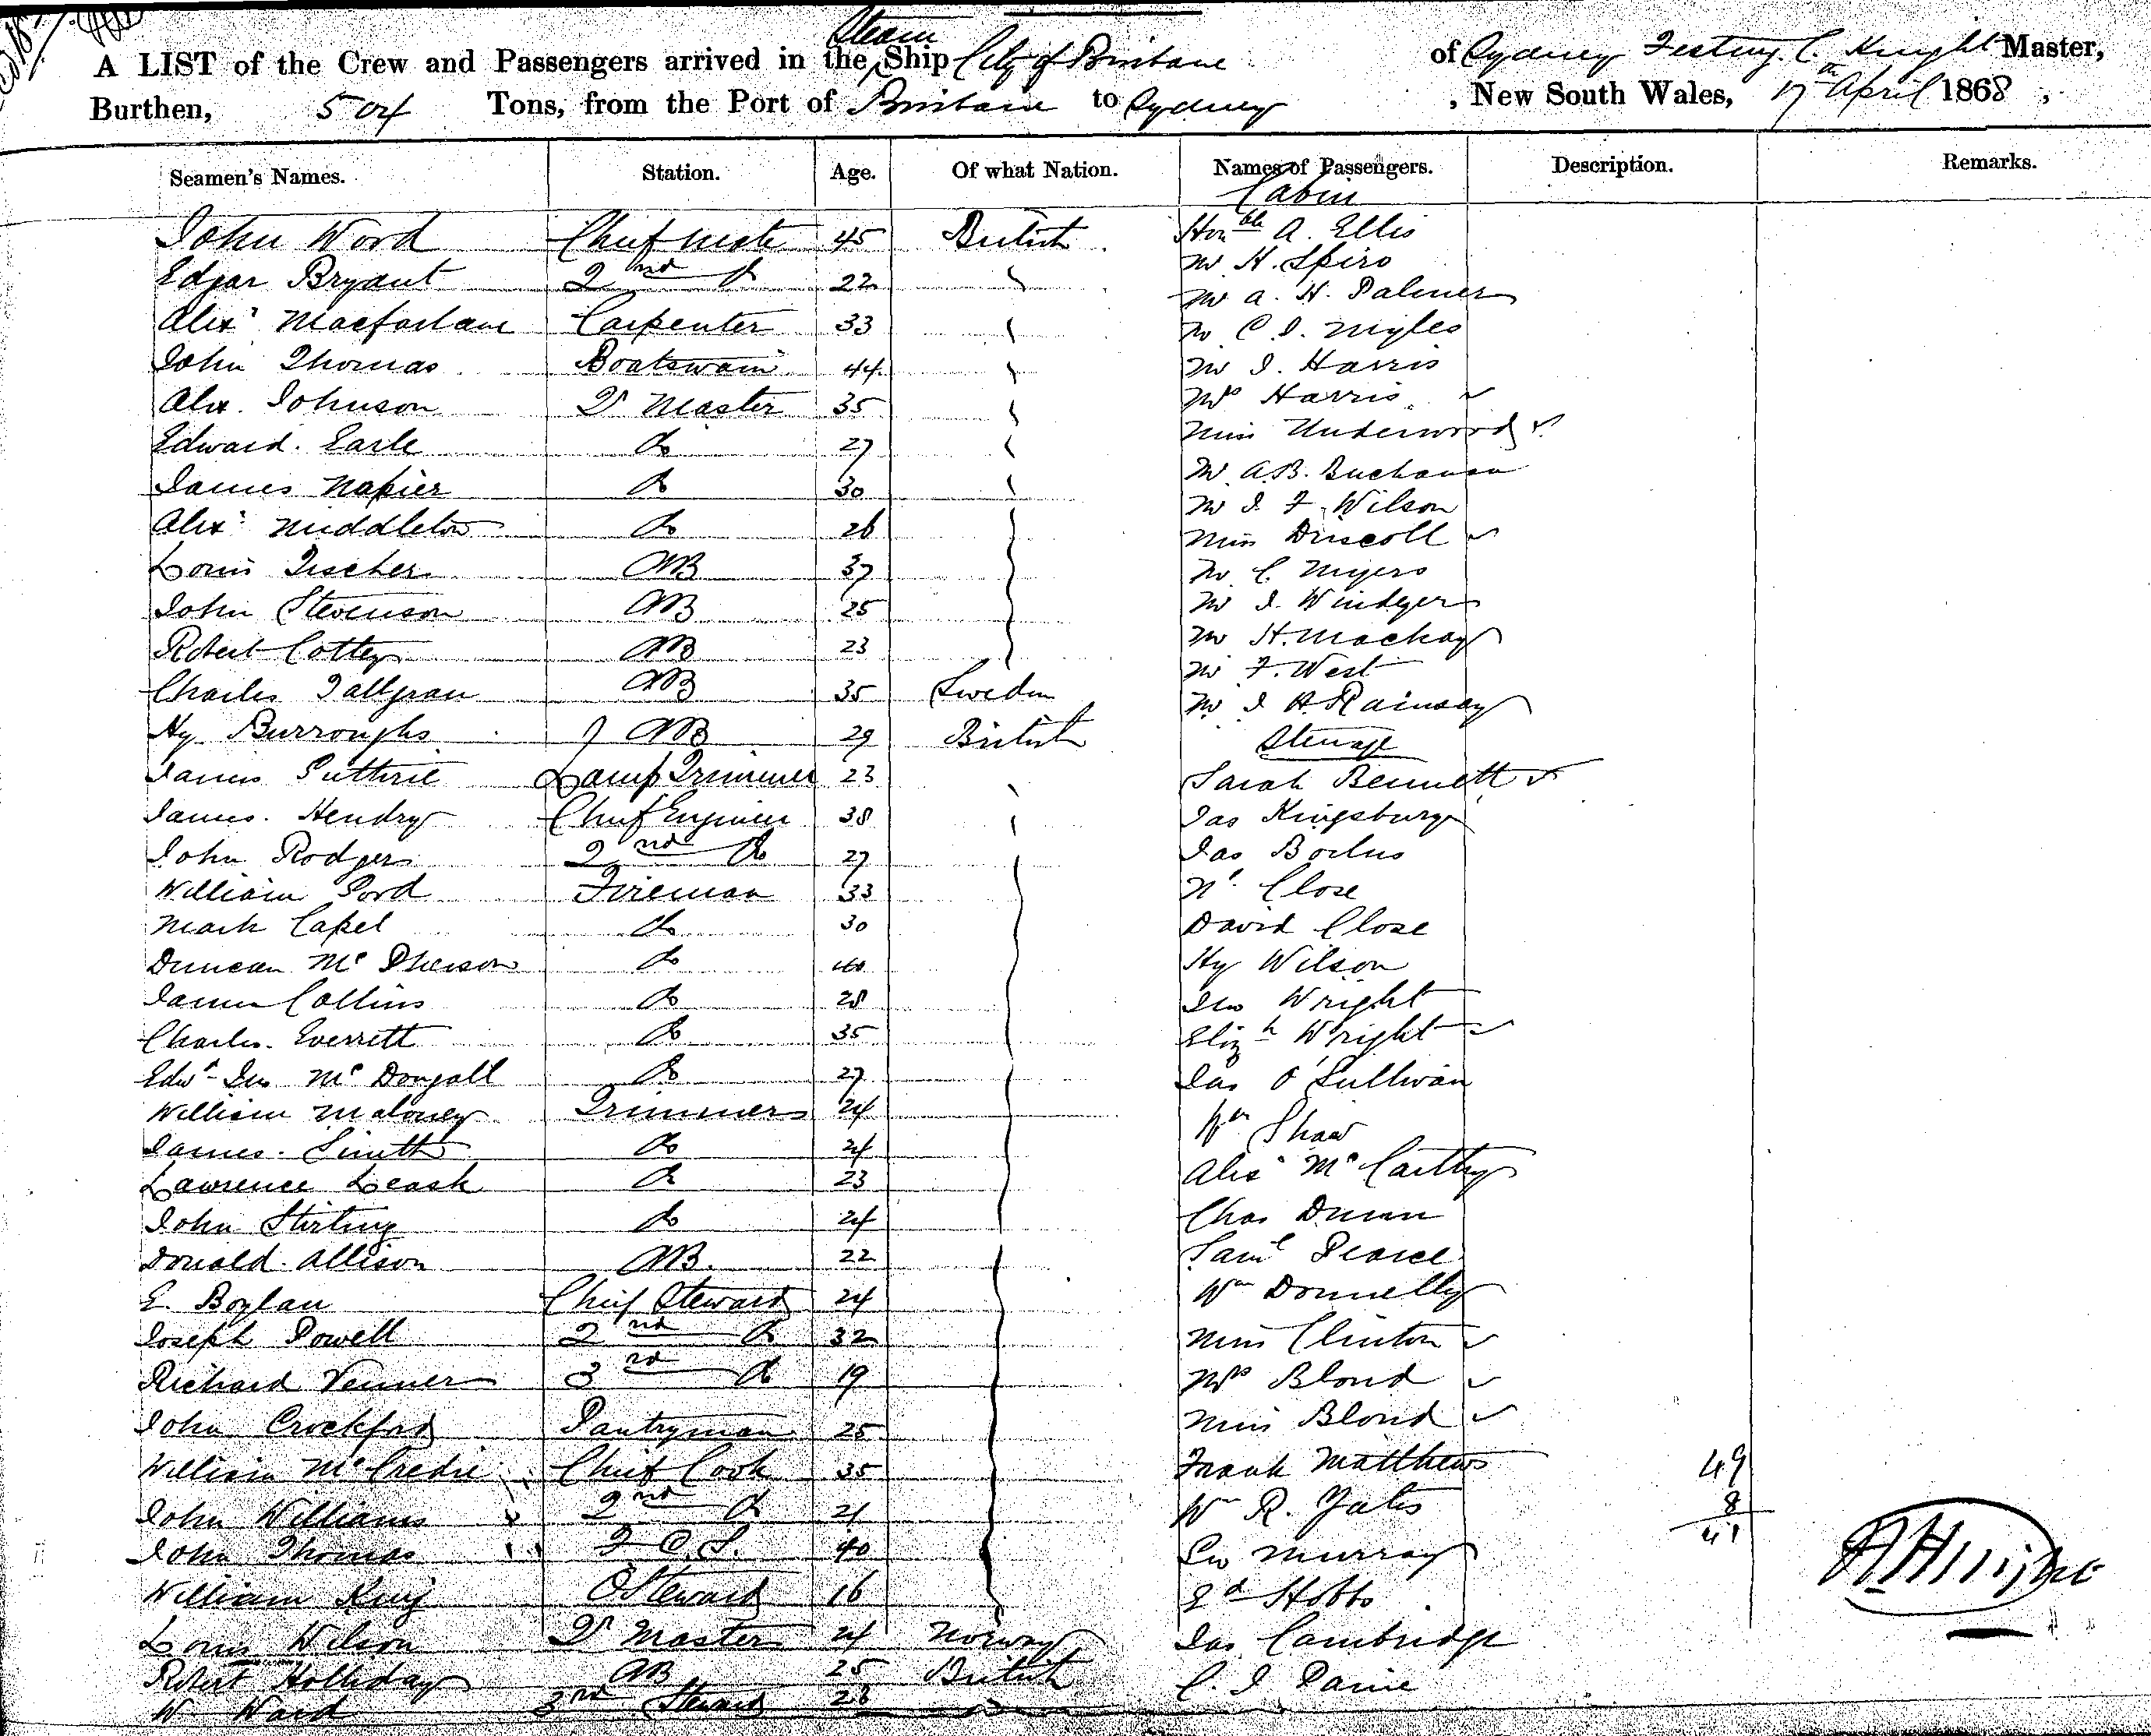 Steam
A LIST of the Crew and Passengers arrived in the Ship City of Brisbane of Sydney Testing C. Knight Master,
Burthen, 504 Tons, from the Port of Brisbane to Sydney, New South Wales, 17th April 1868,
Seamen's Names. Station. Age. Of what Nation. Names of Passengers. Description. Remarks.
Cabin
John Wood Chief Mate 45 British Honble A. Ellis
Edgar Bryant 2nd do 22 Mr H. Spiro
Mr A. H. Palmer
Alexr Macfarlane Carpenter 33 Mr C. J. Myles
John Thomas Boatswain 44 Mr J. Harris
Alex. Johnson Qr Master 35 Mrs Harris
Edward Earle do 27 Miss Underwood
James Napier do 30 Mr A.B. Buchanan
Mr J. F. Wilson
Alexr Middleton do 26 Miss Driscoll
Louis Tischer AB 37 Mr C. Myers
John Stevenson AB 25 Mr J. Windeyer
Robert Cottey AB 23 Mr H. Mackay
Mr F. West
Charles Tallgran AB 35 Sweden Mr J A Rainsay
Hy Burroughs AB 29 British Steerage
James Guthrie Lamp Trimmer 23 Sarah Bennett
James Hendry Chief Engineer 38 Jas Kingsbury
John Rodgers 2nd do 27 Jas
William Ford Fireman 33 Close
Mark Capel do 30 David Close
Duncan McPherson do 40 Hy Wilson
James Collins do 28 Jno Wright
Charles Everrett do 35 Elizh Wright
Edwd Jno McDougall do 27 Jas O'Sullivan
William Maloney Trimmers 24 Wm Shaw
James Smith do 24
Lawrence Leask do 23 Alexr McCarthy
John Stirling do 24 Chas Dunn
Donald Allison AB. 22 Saml Pearce
E. Boylan Chief Steward 24 Wm Donnelly
Joseph Powell 2nd do 32 Miss Clinton
Richard Venner 3rd do 19 Mrs Blond
John Crockford Pantryman 25 Miss Blond
William McCredie Chief Cook 35 Frank Matthews 49
John Williams 2nd do 21 Wm R. Yates 8
John Thomas F.C.S. 40 Murray 41
William King Steward 16 Ed Hobbs
Louis Wilson Qr Master 24 Norway Jas Cambridge
Robert Holliday AB 25 British C. J. Paine
W Ward 3rd Steward 28 do